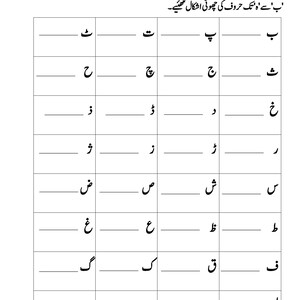 'ب' سے 'و' تک حروف کی چھوٹی اشکال لکھئیے۔
ب ______ پ ______ ت ______ ٹ ______
ث ______ ج ______ چ ______ ح ______
خ ______ د ______ ڈ ______ ذ ______
ر ______ ڑ ______ ز ______ ژ ______
س ______ ش ______ ص ______ ض ______
ط ______ ظ ______ ع ______ غ ______
ف ______ ق ______ ک ______ گ ______